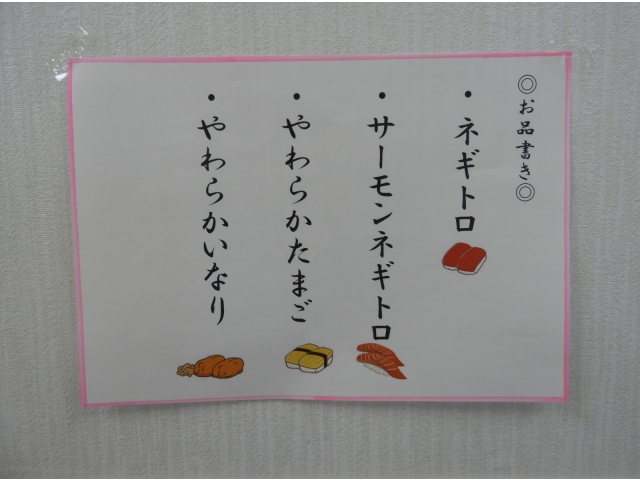 ◎お品書き◎
・ネギトロ
・サーモンネギトロ
・やわらかたまご
・やわらかいなり